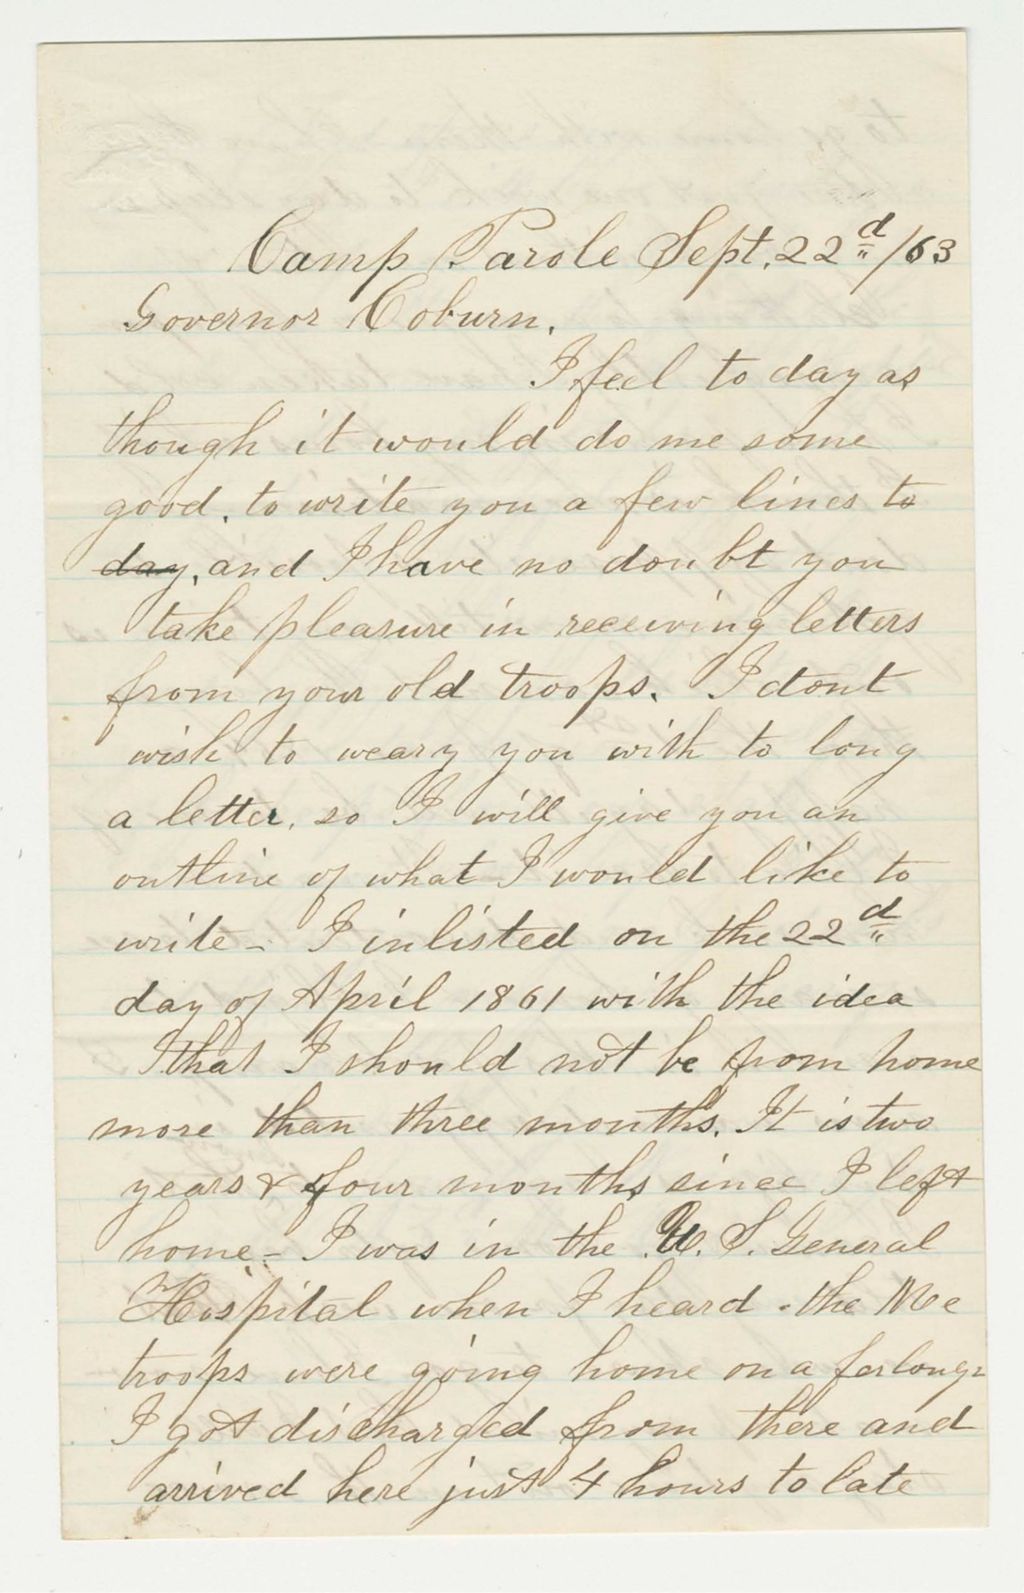 Camp Parole Sept. 22d/63
Governor Coburn.
I feel to day as
though it would do me some
good, to write you a few lines to
day, and I have no doubt you
take pleasure in receiving letters
from your old troops. I dont
wish to weary you with to long
a letter, so I will give you an
outline of what I would like to
write - I inlisted on the 22d
day of April 1861 with the idea
that I should not be from home
more than three months. It is two
years & four months since I left
home - I was in the U. S. General
Hospital when I heard - the Me
troops were going home on a furlong-
I got discharged from there and
arrived here just 4 hours to late